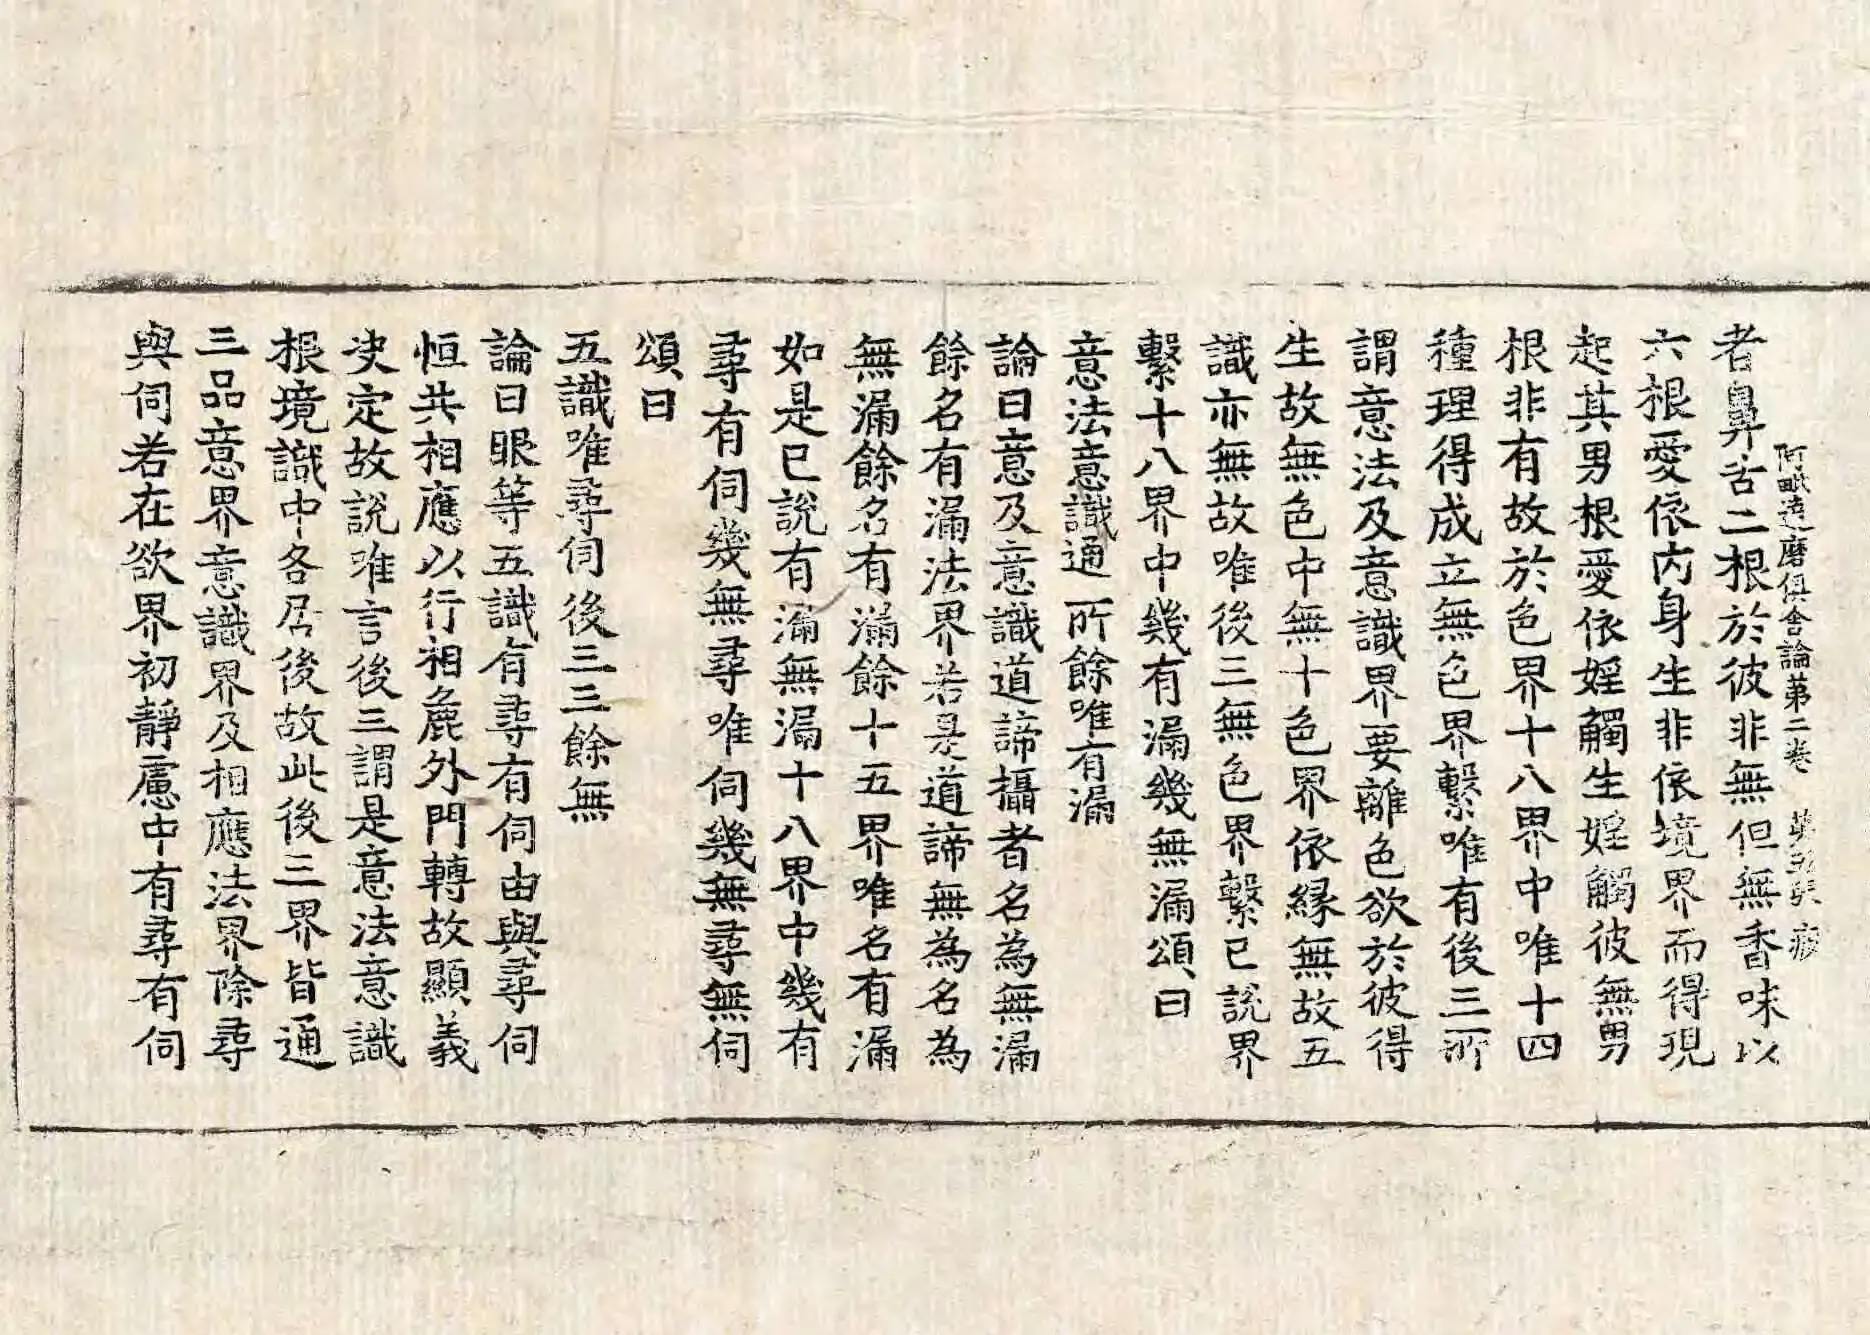 阿毗達磨俱舍論第二卷　第五張　疲
者鼻舌二根於彼非無但無香味以
六根愛依內身生非依境界而得現
起其男根愛依婬觸生婬觸彼無男
根非有故於色界十八界中唯十四
種理得成立無色界繫唯有後三所
謂意法及意識界要離色欲於彼得
生故無色中無十色界依緣無故五
識亦無故唯後三無色界繫已說界
繫十八界中幾有漏幾無漏頌曰
意法意識通　所餘唯有漏
論曰意及意識道諦攝者名為無漏
餘名有漏法界若是道諦無為名為
無漏餘名有漏餘十五界唯名有漏
如是已說有漏無漏十八界中幾有
尋有伺幾無尋唯伺幾無尋無伺
頌曰
五識唯尋伺　後三三餘無
論曰眼等五識有尋有伺由與尋伺
恒共相應以行相麁外門轉故顯義
決定故說唯言後三謂是意法意識
根境識中各居後故此後三界皆通
三品意界意識界及相應法界除尋
與伺若在欲界初靜慮中有尋有伺